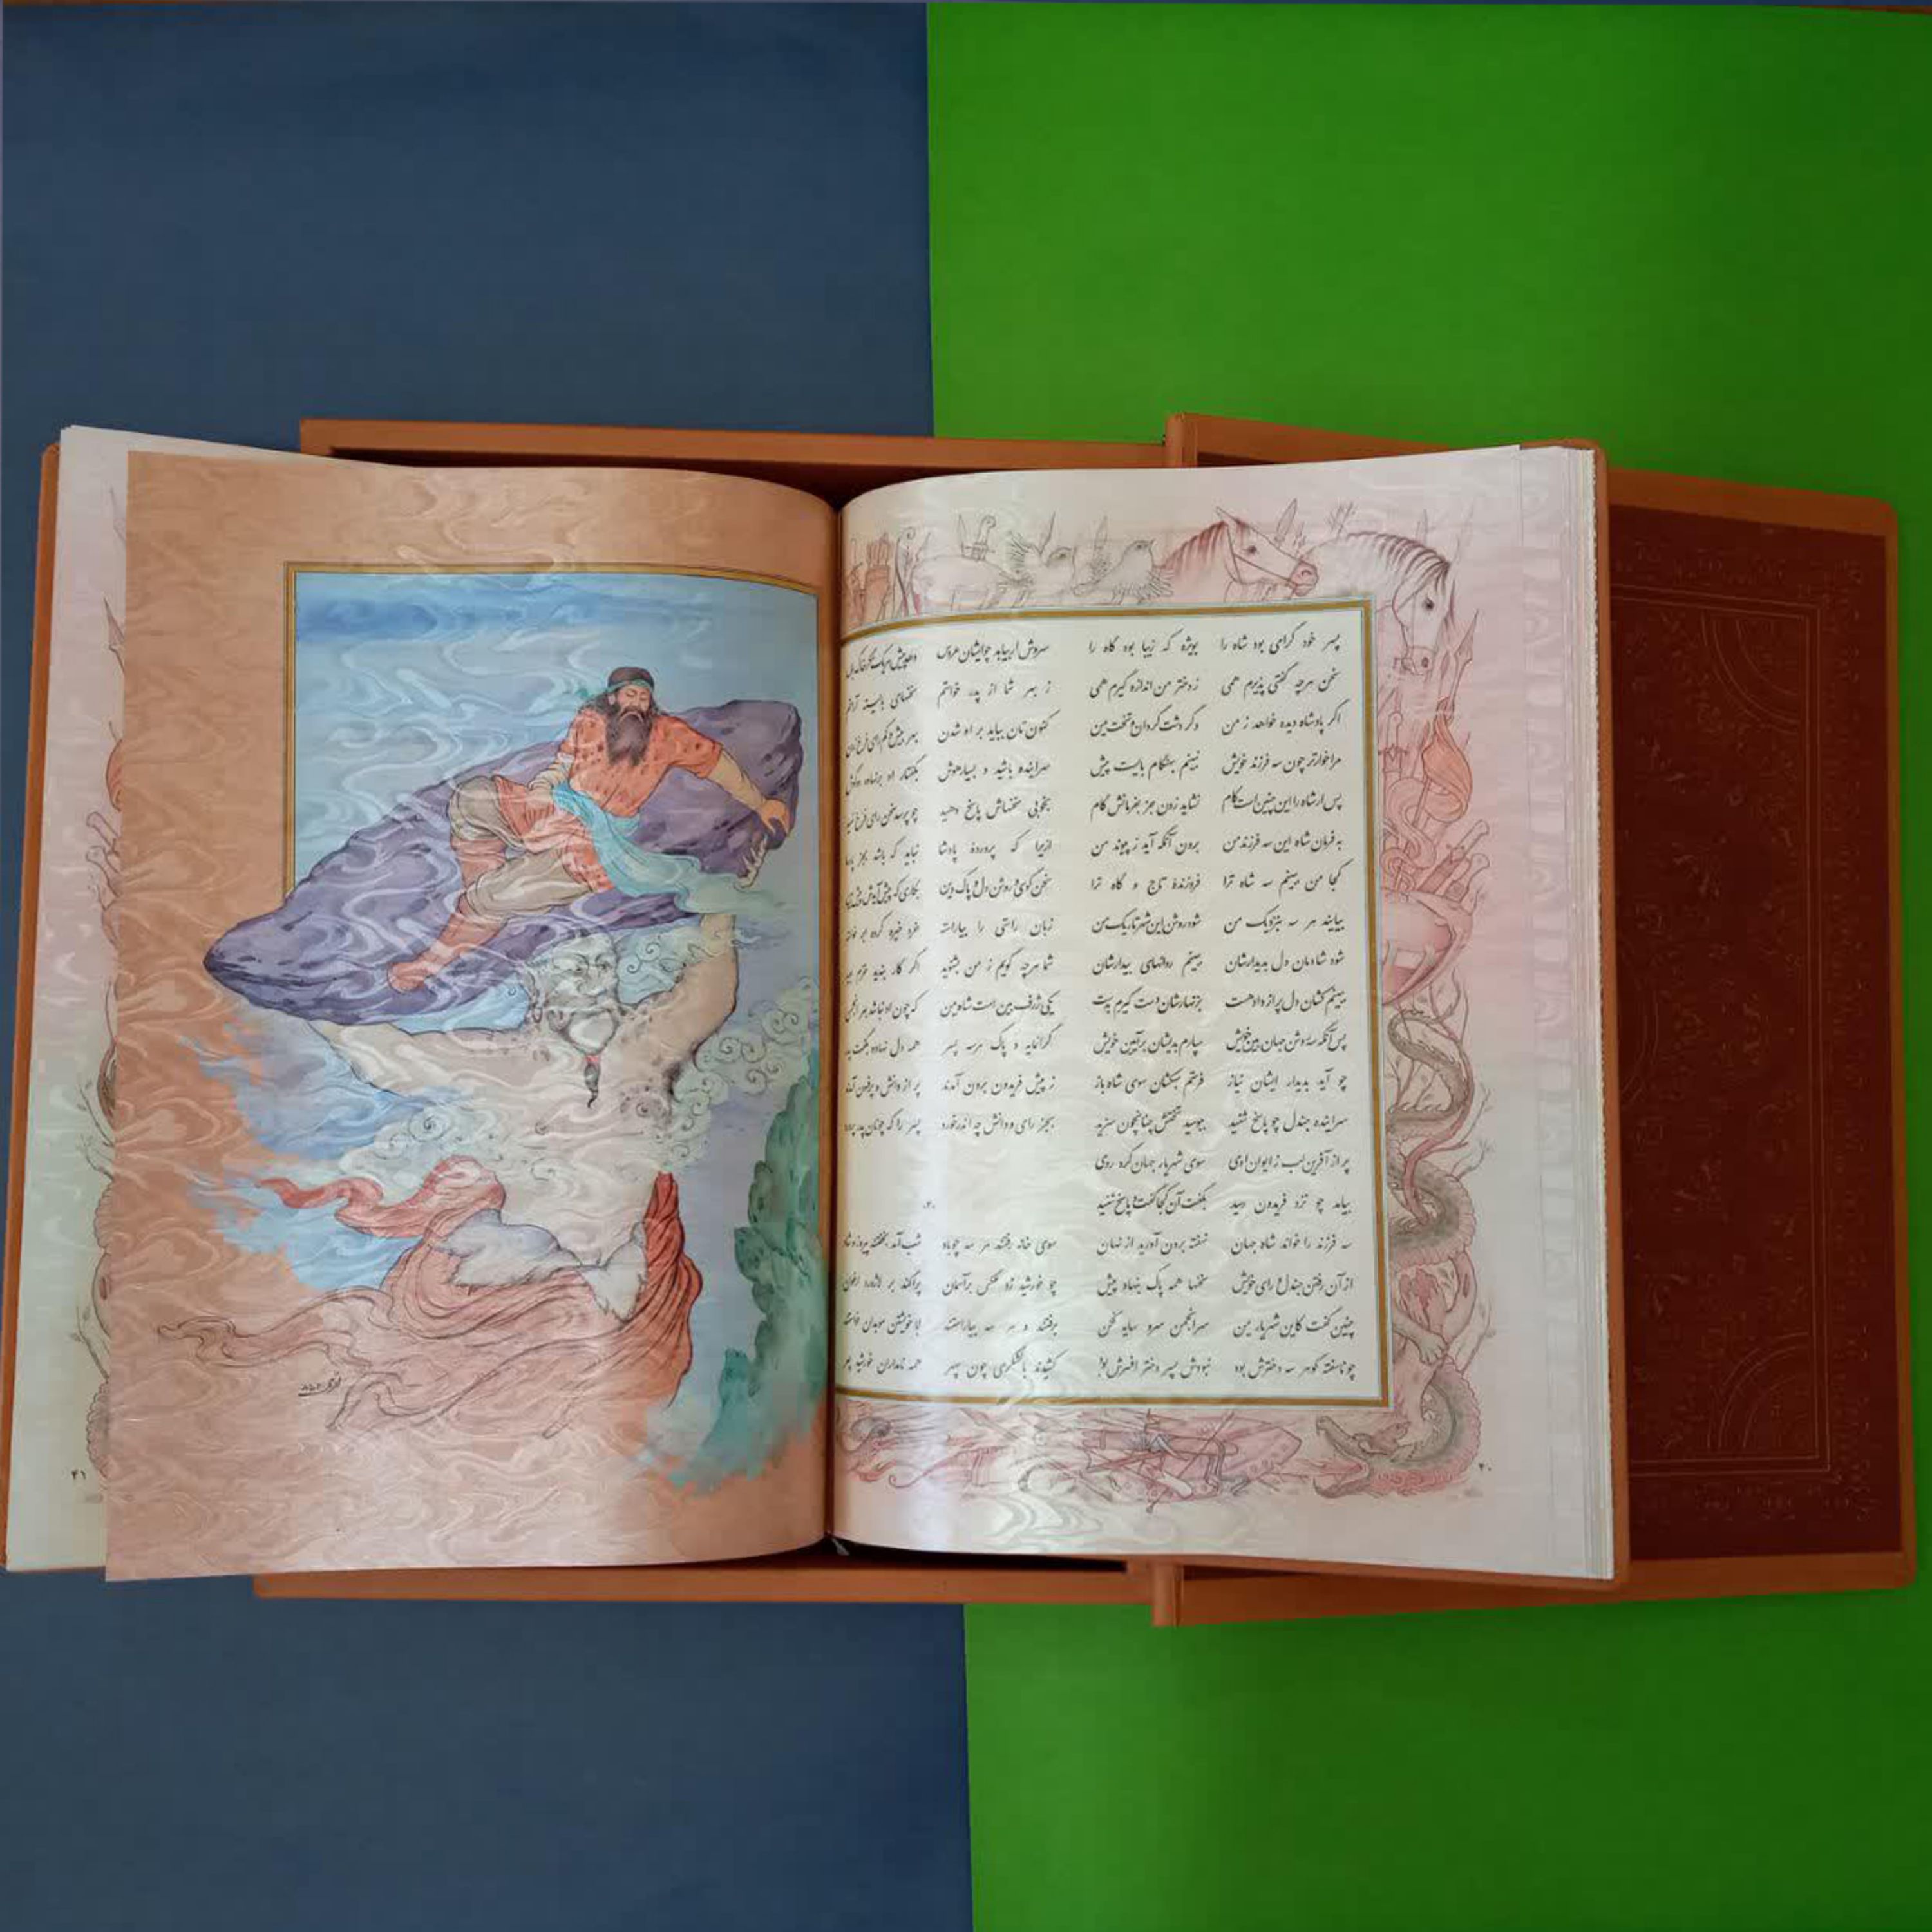 پسر خود گرامی بود شاه را بویژه که زیبا بود گاه را
سخن هرچه گفتی پذیرم همی ز دختر من اندازه گیرم همی
اگر پادشاه دیده خواهد ز من وگر دشت گردان و تخت یمن
مرا خوارتر چون سه فرزند خویش نبینم بهنگام بایست پیش
پس ار شاه را این چنین است کام نشاید زدن جز بفرمانش گام
به فرمان شاه این سه فرزند من برون آنگه آید ز پیوند من
کجا من ببینم سه شاه ترا فروزندهٔ تاج و گاه ترا
بیایند هر سه بنزدیک من شود روشن این شهر تاریک من
شود شادمان دل بدیدارشان ببینم روانهای بیدارشان
ببینم کشان دل پر از داد هست بزنهارشان دست گیرم بدست
پس آنگه سه روشن جهان بین خویش سپارم بدیشان بر آیین خویش
چو آید بدیدار ایشان نیاز فرستم سبکشان سوی شاه باز
سراینده جندل چو پاسخ شنید ببوسید تختش چنانچون سزید
پر از آفرین لب ز ایوان اوی سوی شهریار جهان کرد روی
بیامد چو نزد فریدون رسید بگفت آن کجا گفت و پاسخ شنید
سه فرزند را خواند شاه جهان نهفته برون آورید از نهان
از آن رفتن جندل و رای خویش سخنها همه پاک بنهاد پیش
چنین گفت کاین شهریار یمن سر انجمن سرو سایه فکن
چو ناسفته گوهر سه دخترش بود نبودش پسر دختر افسرش بود
سروش ار بیابد چو ایشان عروس
ز بهر شما از پدر خواستم سخنهای بایسته آراستم
کنون تان بباید بر او شدن بهر بیش و کم رای فرخ زدن
سراینده باشید و بسیار هوش بگفتار او برنهاده دو گوش
بخوبی سخنهاش پاسخ دهید چو پرسد سخن رای فرخ نهید
ازیرا که پروردهٔ پادشا نباید که باشد بجز پارسا
سخن گوی و روشن دل و پاک دین بکاری که پیش آیدش پیش بین
زبان راستی را بیاراسته خرد خیره کرده بر خواسته
شما هرچه گویم ز من بشنوید اگر کار بندید خرم بوید
یکی ژرف بین است شاه یمن که چون او نباشد بهر انجمن
گرانمایه و پاک هر سه پسر همه دل نهاده بگفت پدر
ز پیش فریدون برون آمدند پر از دانش و پر فسون آمدند
بجز رای و دانش چه اندر خورد پسر را که چونان پدر پرورد
سوی خانه رفتند هر سه چو باد شب آمد بخفتند پیروز و شاد
چو خورشید زد عکس بر آسمان پراکند بر لاژورد ارغوان
برفتند و هر سه بیاراستند ابا خویشتن موبدان خواستند
کشیدند با لشکری چون سپهر همه نامداران خورشید چهر
۴۰
۴۱